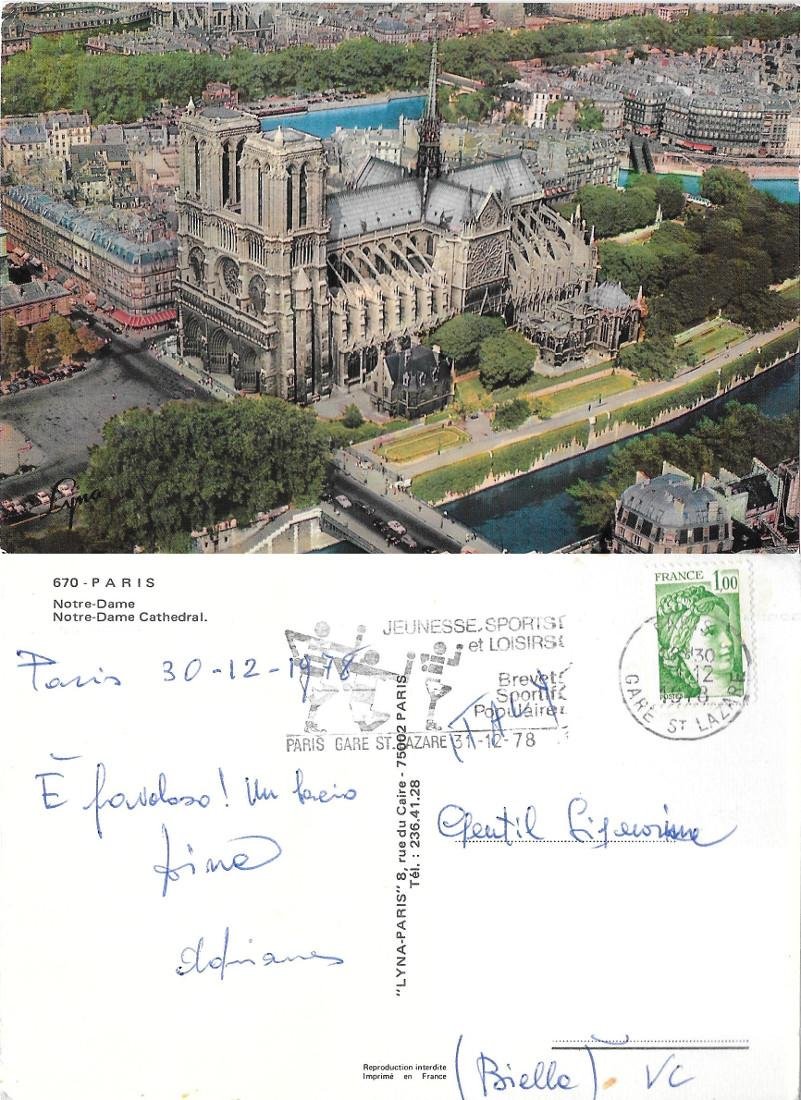 Lyna
670 - PARIS
Notre-Dame
Notre-Dame Cathedral.
JEUNESSE. SPORTS
et LOISIRS
Brevet
Sportif
Populaire
PARIS GARE ST. LAZARE 31-12-78
FRANCE 1,00
POSTES
30
12
GARE ST LAZARE
Paris 30-12-1978
È favoloso! Un bacio
Adriano
"LYNA-PARIS" 8, rue du Caire - 75002 PARIS
Tél. : 236.41.28
Gentil Signorina
(Biella) VC
Reproduction interdite
Imprimé en France